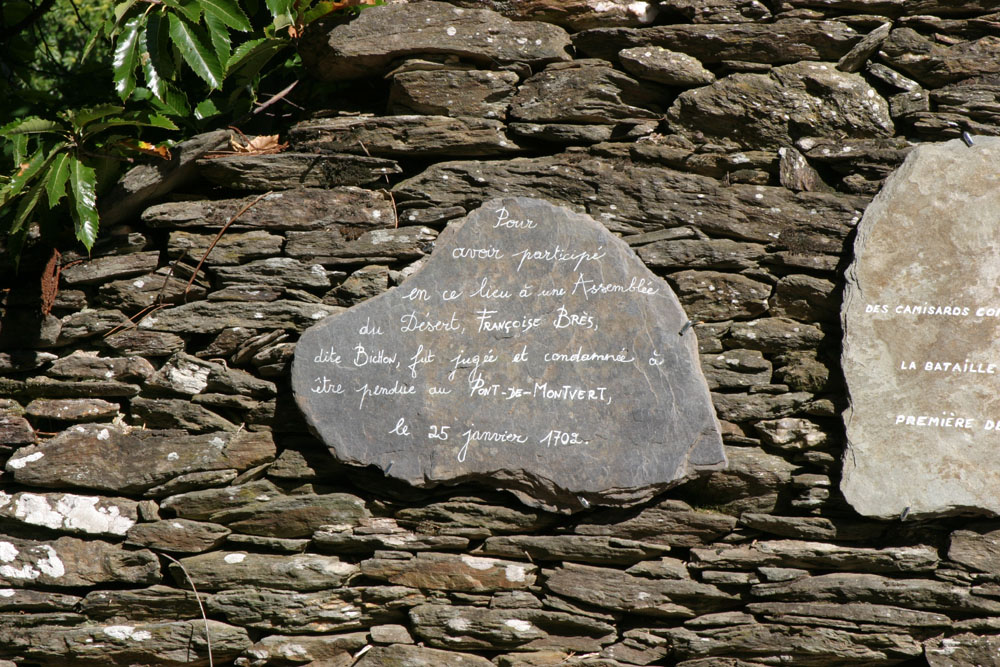 Pour
avoir participé
en ce lieu à une Assemblée
du Désert, Françoise Brès,
dite Bichon, fut jugée et condamnée à
être pendue au Pont-de-Montvert,
le 25 janvier 1702.
DES CAMISARDS
LA BATAILLE
PREMIÈRE